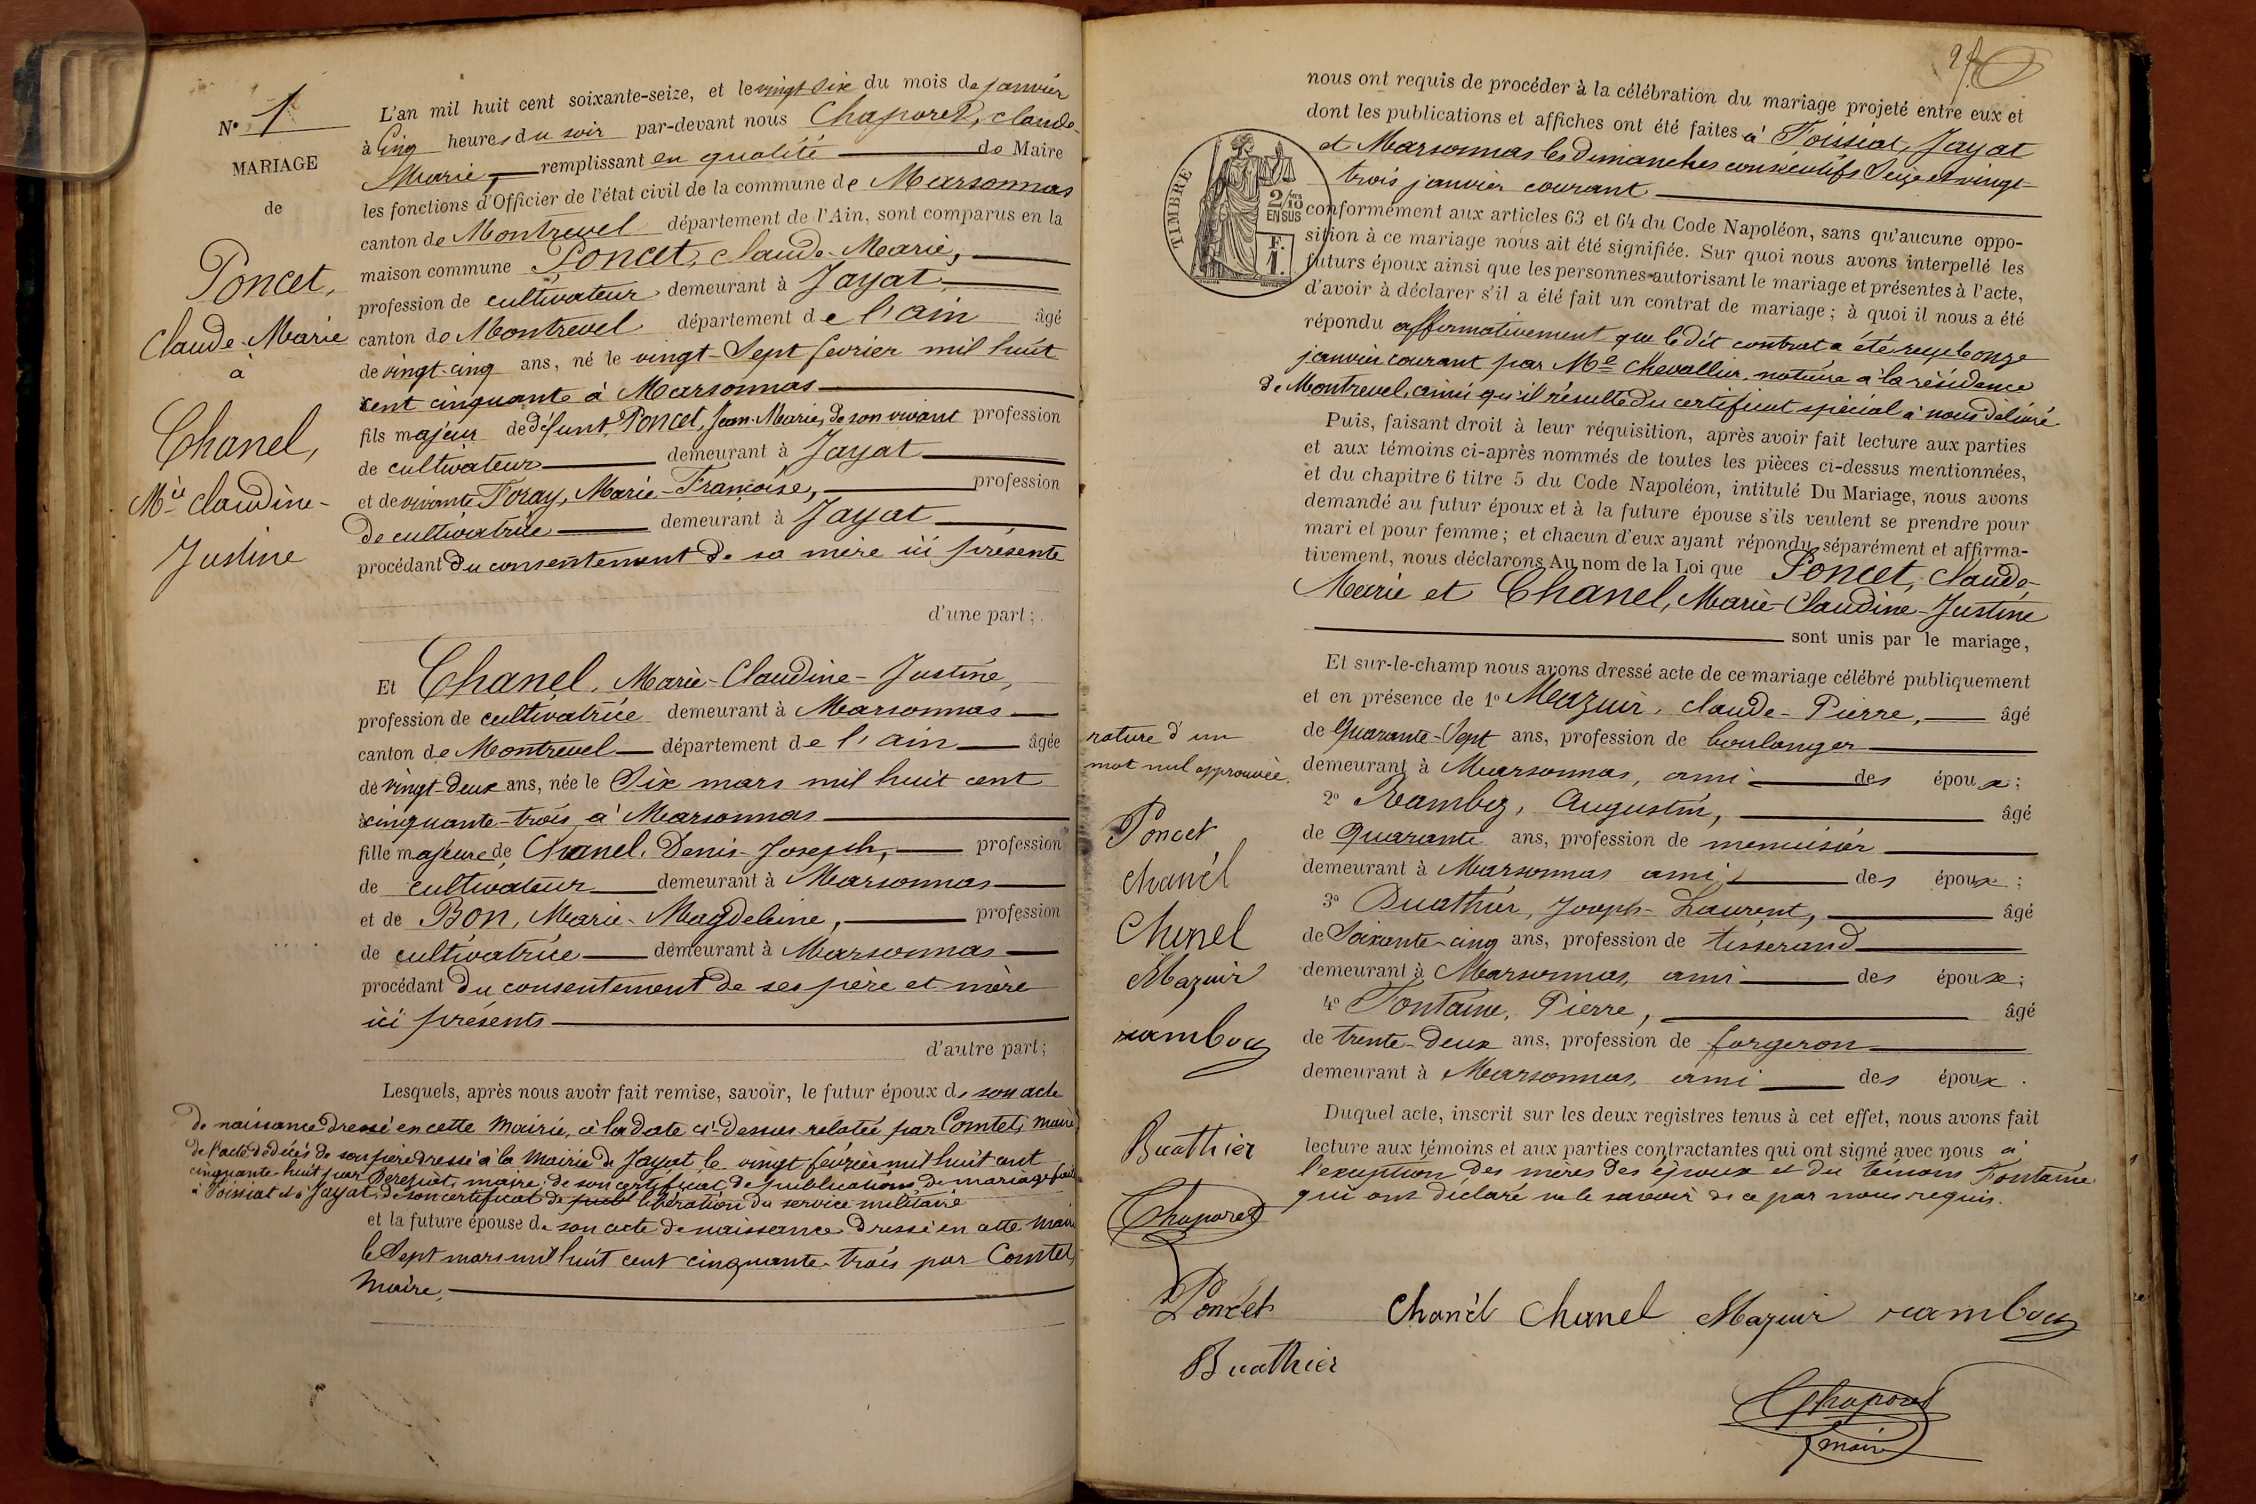 N° 1
MARIAGE
de
Poncet,
Claude-Marie
à
Chanel,
Mie Claudine-
Justine
L'an mil huit cent soixante-seize, et le vingt six du mois de janvier
à cinq heures du soir par-devant nous Chaporet, Claude-
Marie, remplissant en qualité de Maire
les fonctions d'Officier de l'état civil de la commune de Marsonnas
canton de Montrevel département de l'Ain, sont comparus en la
maison commune Poncet, Claude-Marie,
profession de cultivateur demeurant à Jayat
canton de Montrevel département de l'ain âgé
de vingt-cinq ans, né le vingt-sept fevrier mil huit
cent cinquante à Marsonnas
fils majeur de défunt Poncet, Jean-Marie, de son vivant profession
de cultivateur demeurant à Jayat
et de vivante Foray, Marie-Francoise, profession
de cultivatrice demeurant à Jayat
procédant du consentement de sa mère ici présente
d'une part;
Et Chanel, Marie-Claudine-Justine,
profession de cultivatrice demeurant à Marsonnas
canton de Montrevel département de l'ain âgée
de vingt-deux ans, née le Six mars mil huit cent
cinquante-trois à Marsonnas
fille majeure de Chanel, Denis-Joseph, profession
de cultivateur demeurant à Marsonnas
et de Bon, Marie-Magdeleine, profession
de cultivatrice demeurant à Marsonnas
procédant du consentement de ses père et mère
ici présents
d'autre part;
Lesquels, après nous avoir fait remise, savoir, le futur époux de son acte
de naissance dressé en cette Mairie, à la date ci-dessus relatée par Comtet, maire
de l'acte de décés de son père dressé à la Mairie de Jayat le vingt fevrier mil huit cent
cinquante-huit par maire; de son certificat de publications de mariage fait
à Foissiat et à Jayat, de son certificat de publ libération du service militaire
et la future épouse de son acte de naissance dressé en cette Mairie
le Sept mars mil huit cent cinquante-trois par Comtet,
Maire.
nous ont requis de procéder à la célébration du mariage projeté entre eux et
dont les publications et affiches ont été faites à Foissiat, Jayat
et Marsonnas les dimanches consécutifs Seize et vingt-
trois janvier courant.
TIMBRE
2/10
EN SUS
F.
1.
conformément aux articles 63 et 64 du Code Napoléon, sans qu'aucune oppo-
sition à ce mariage nous ait été signifiée. Sur quoi nous avons interpellé les
futurs époux ainsi que les personnes autorisant le mariage et présentes à l'acte,
d'avoir à déclarer s'il a été fait un contrat de mariage; à quoi il nous a été
répondu affirmativement que le dit contrat a été reçu le onze
janvier courant par Me Chevallier, notaire à la résidence
de Montrevel, ainsi qu'il résulte du certificat spécial à nous délivré
Puis, faisant droit à leur réquisition, après avoir fait lecture aux parties
et aux témoins ci-après nommés de toutes les pièces ci-dessus mentionnées,
et du chapitre 6 titre 5 du Code Napoléon, intitulé Du Mariage, nous avons
demandé au futur époux et à la future épouse s'ils veulent se prendre pour
mari et pour femme; et chacun d'eux ayant répondu séparément et affirma-
tivement, nous déclarons Au nom de la Loi que Poncet, Claude-
Marie et Chanel, Marie-Claudine-Justine
sont unis par le mariage,
Et sur-le-champ nous avons dressé acte de ce mariage célébré publiquement
et en présence de 1° Mazuir, Claude-Pierre, âgé
de Quarante-Sept ans, profession de boulanger
demeurant à Marsonnas, ami des époux;
2° Ramboz, Augustin, âgé
de Quarante ans, profession de menuisier
demeurant à Marsonnas ami des époux;
3° Buathier, Joseph-Laurent, âgé
de Soixante-cinq ans, profession de tisserand
demeurant à Marsonnas, ami des époux;
4° Fontaine, Pierre, âgé
de trente-deux ans, profession de forgeron
demeurant à Marsonnas, ami des époux.
Duquel acte, inscrit sur les deux registres tenus à cet effet, nous avons fait
lecture aux témoins et aux parties contractantes qui ont signé avec nous à
l'exception des mères des époux et du témoin Fontaine
qui ont déclaré ne le savoir de ce par nous requis.
rature d'un
mot nul approuvée.
Poncet
chanel
Chanel
Mazuir
ramboz
Buathier
Chaporet
Poncet chanel Chanel Mazuir ramboz
Buathier
Chaporet
maire